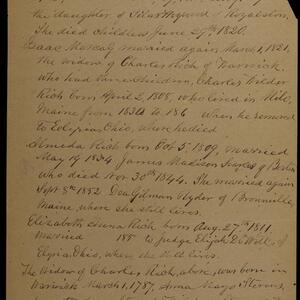 the daughter of Silas Heywood, Royalston.
She died childless June 27th 1820.
Isaac Metcalf married again March 1, 1821,
the widow of Charles Rich of Warwick
who had three children, Charles Wilder
Rich born April 2, 1808, who lived in Milo,
Maine from 1830 to 186 when he removed
to Elyria, Ohio, where he died
Almeda Rich born Oct 5, 1809, married
May 19 1834 James Madison of Berlin
who died Nov 30th 1844. She married again
Sept 8th 1852 Dea Gilman Ryder of Brownville
Maine, where she still lives.
Elizabeth Anna Rich born Aug 27th 1811
married 185 to Judge Elijah DeWolf of
Elyria Ohio, where she still lives.
The Widow of Charles Rich, above, was born in
Warwick March 1, 1787, Anna Mayo Stevens